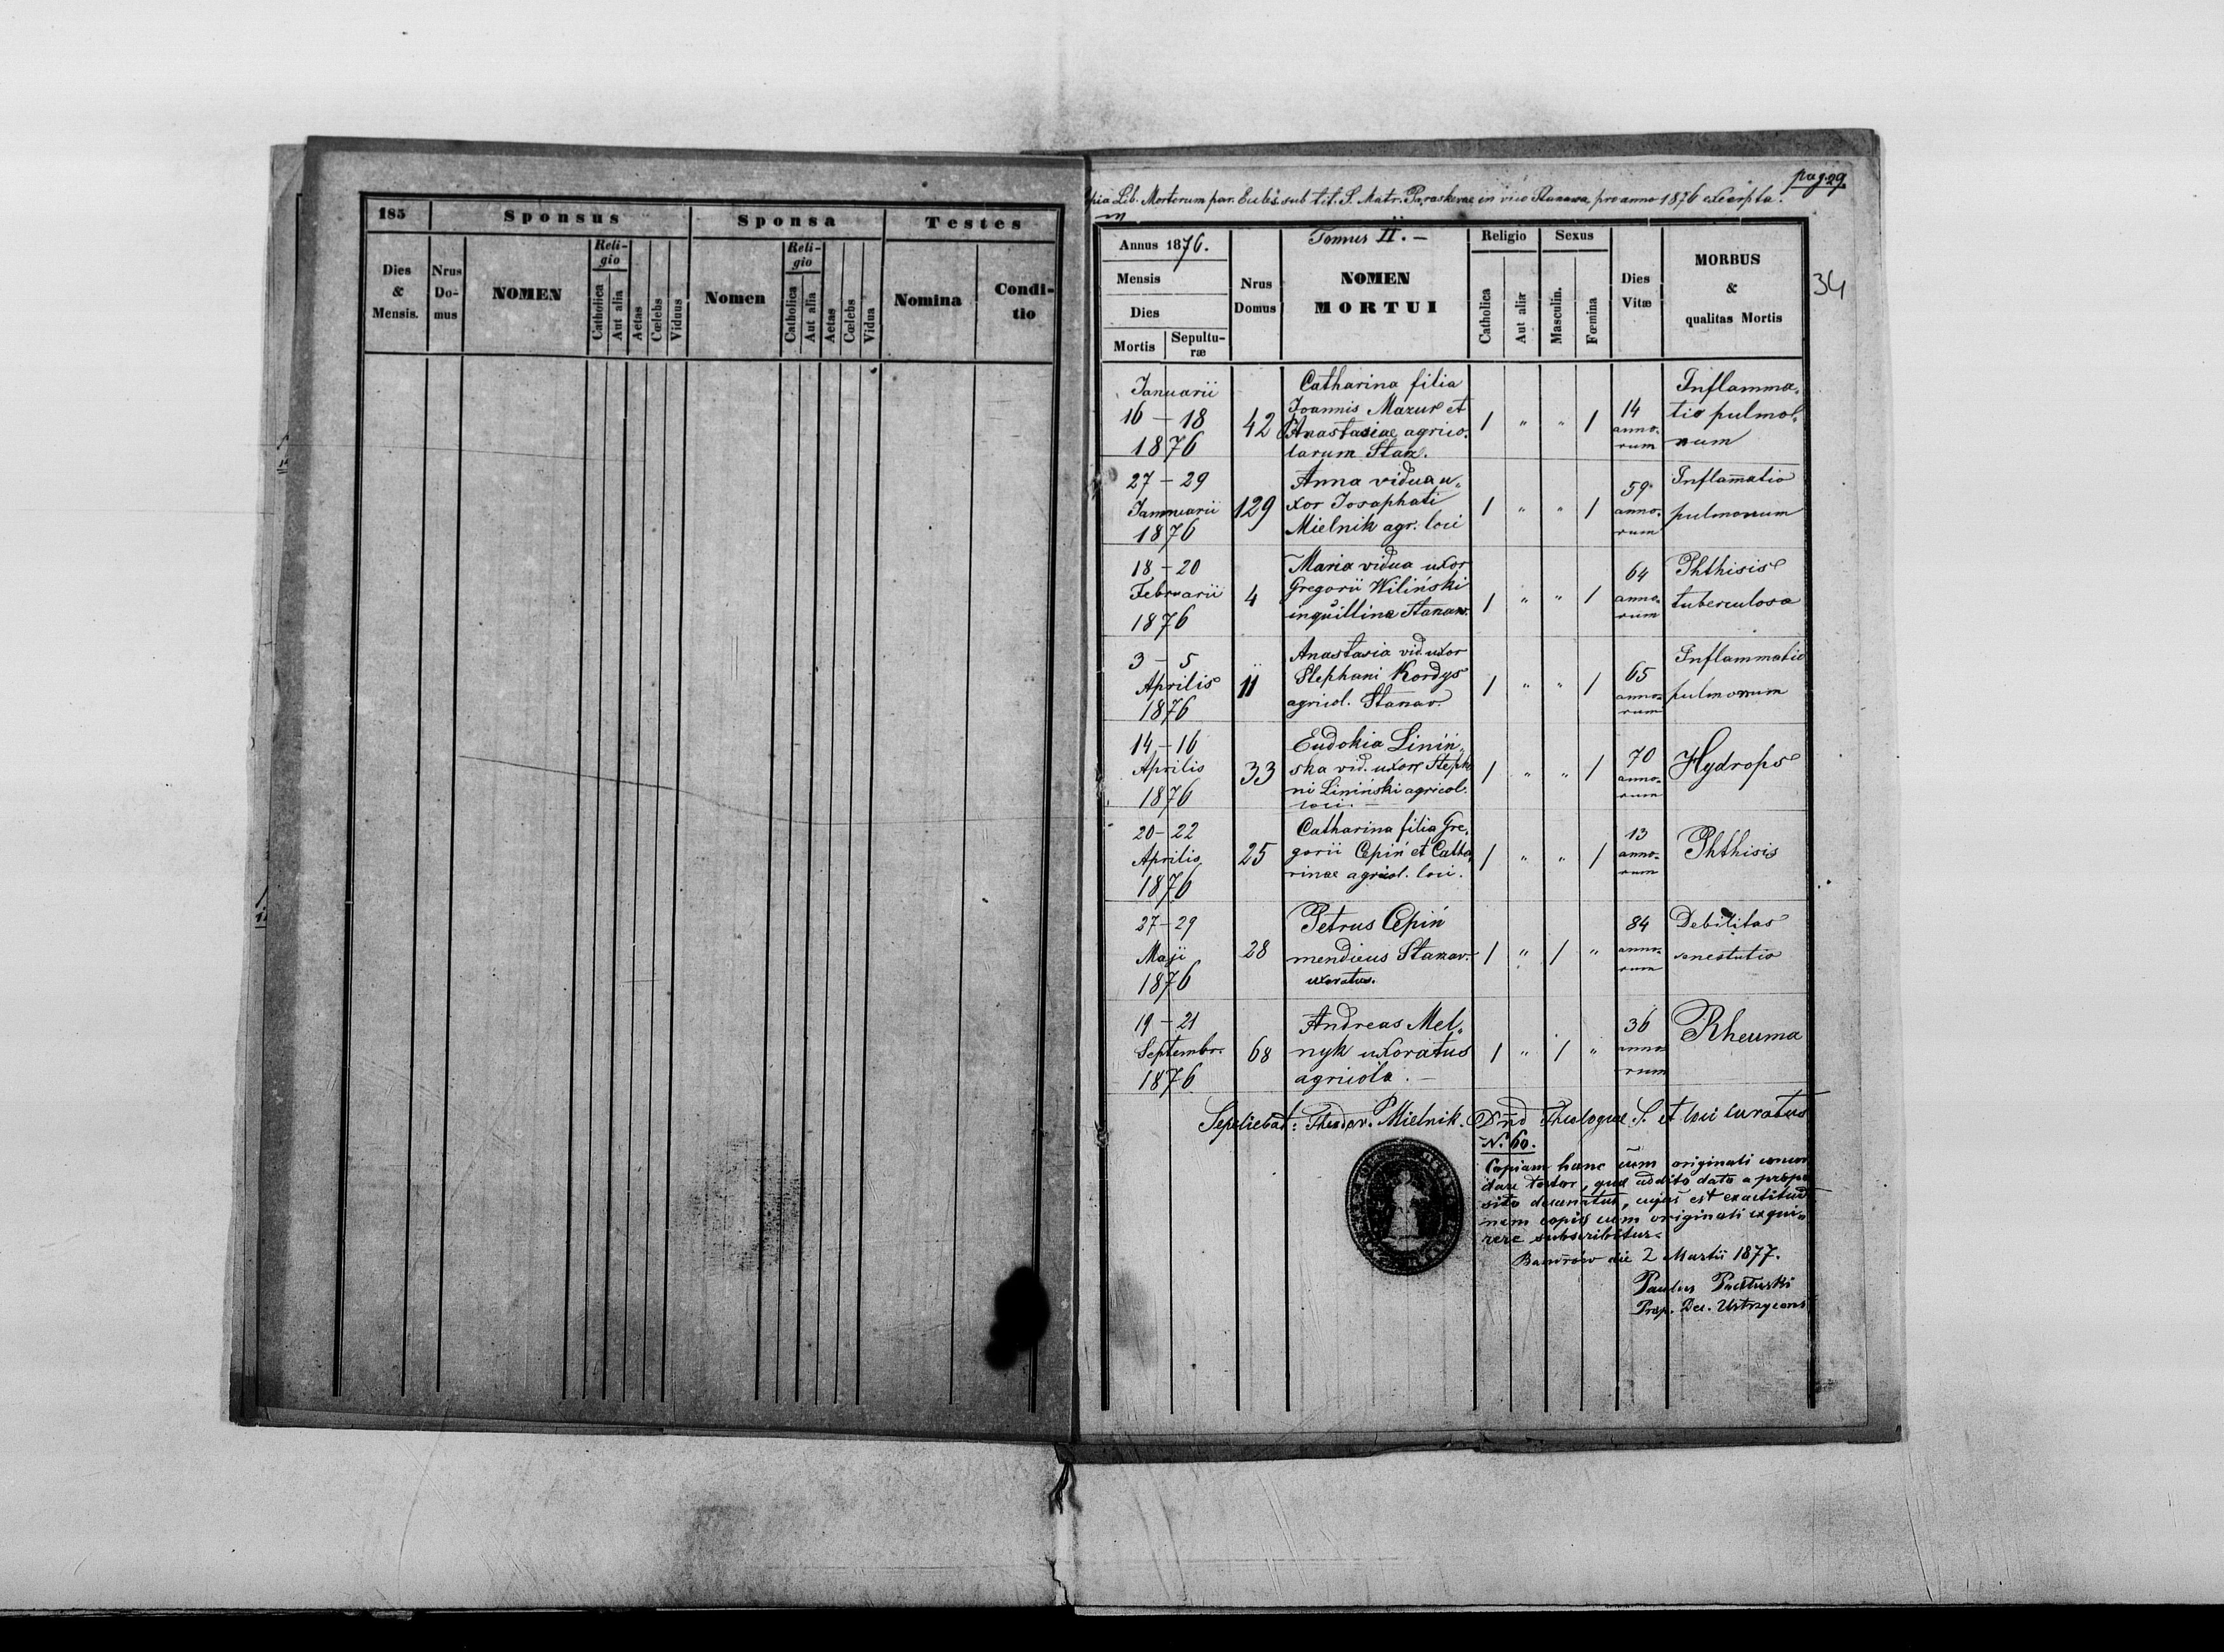 185
Sponsus
Sponsa
Testes
Dies & Mensis.
Nrus Do-mus
NOMEN
Reli-gio
Catholica
Aut alia
Aetas
Cœlebs
Viduus
Nomen
Reli-gio
Catholica
Aut alia
Aetas
Cœlebs
Vidua
Nomina
Condi-tio
pag. 29.
Lib. Mortorum par. Eccles. sub tit. S. Matr. Paraskevae in vico pro anno 1876 excerpta.
34
Annus 1876.
Mensis
Dies
Mortis
Sepultu-ræ
Nrus Domus
Tomus II. —
NOMEN
MORTUI
Religio
Catholica
Aut aliæ
Sexus
Masculin.
Fœmina
Dies Vitæ
MORBUS
&
qualitas Mortis
Januarii
16 — 18
1876
42
Catharina filia
Joannis Mazur et
Anastasiae agrico-
larum Stan.
1 " " 1
14
anno-
rum
Inflamma-
tio pulmo-
num
27 — 29
Januarii
1876
129
Anna vidua u-
xor Josaphati
Mielnik agr. loci
1 " " 1
59
anno-
rum
Inflam̄atio
pulmonum
18 — 20
Februarii
1876
4
Maria vidua uxor
Gregorii Wiliński
inquillina Stanaw.
1 " " 1
64
anno-
rum
Phthisis
tuberculosa
3 — 5
Aprilis
1876
11
Anastasia vid. uxor
Stephani Kordys
agricol. Stanav.
1 " " 1
65
anno-
rum
Inflammatio
pulmonum
14 — 16
Aprilis
1876
33
Eudokia Liniń-
ska vid. uxor Steph
ni Liniński agricol.
loci. —
1 " " 1
70
anno-
rum
Hydrops
20 — 22
Aprilis
1876
25
Catharina filia Gre-
gorii Cepiń et Catha
rinae agricol. loci.
1 " " 1
13
anno-
rum
Phthisis
27 — 29
Maji
1876
28
Petrus Cepiń
mendicus Stanav.
uxoratus.
1 " 1 "
84
anno-
rum
Debilitas
19 — 21
Septembr.
1876
68
Andreas Mel-
nyk uxoratus
agricola. —
1 " 1 "
36
anno-
rum
Rheuma
Sepeliebat: Theodor. Mielnik. Theologiae S. et loci curatus
N. 60.
Copiam hanc cum originali concor
dare testor, que addito dato a prepo
sito decanatus, cujus est exactitud
nem copiae cum originali exqui-
rere subscribitur.
die 2 Martii 1877.
Paulus
Prep. Dec.